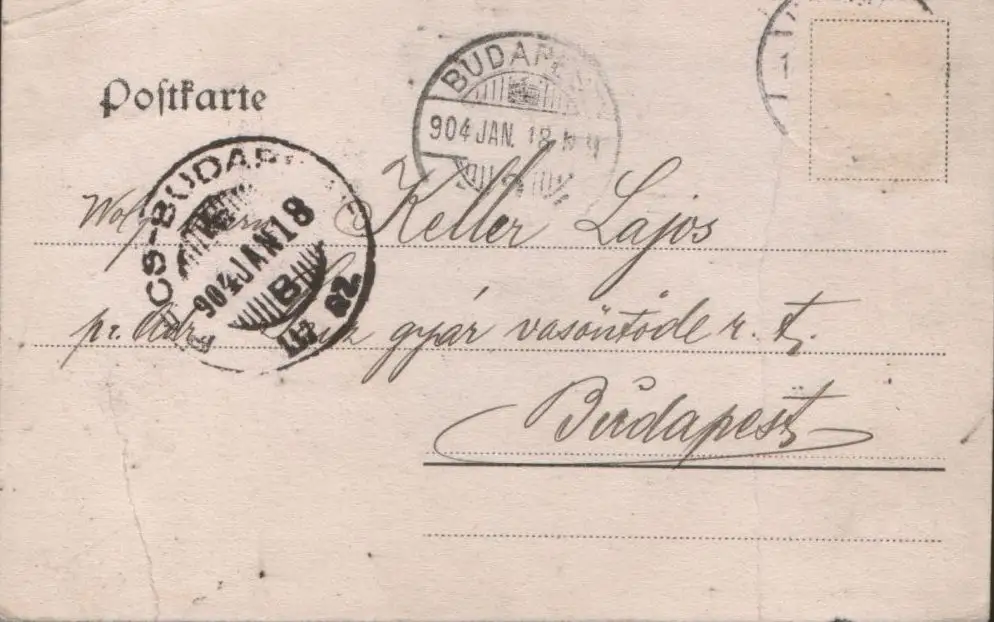 Postkarte
BUDAPEST
904 JAN. 18
CS-BUDAP
904 JAN 18
B
Keller Lajos
pr. gyár vasöntöde r. t.
Budapest